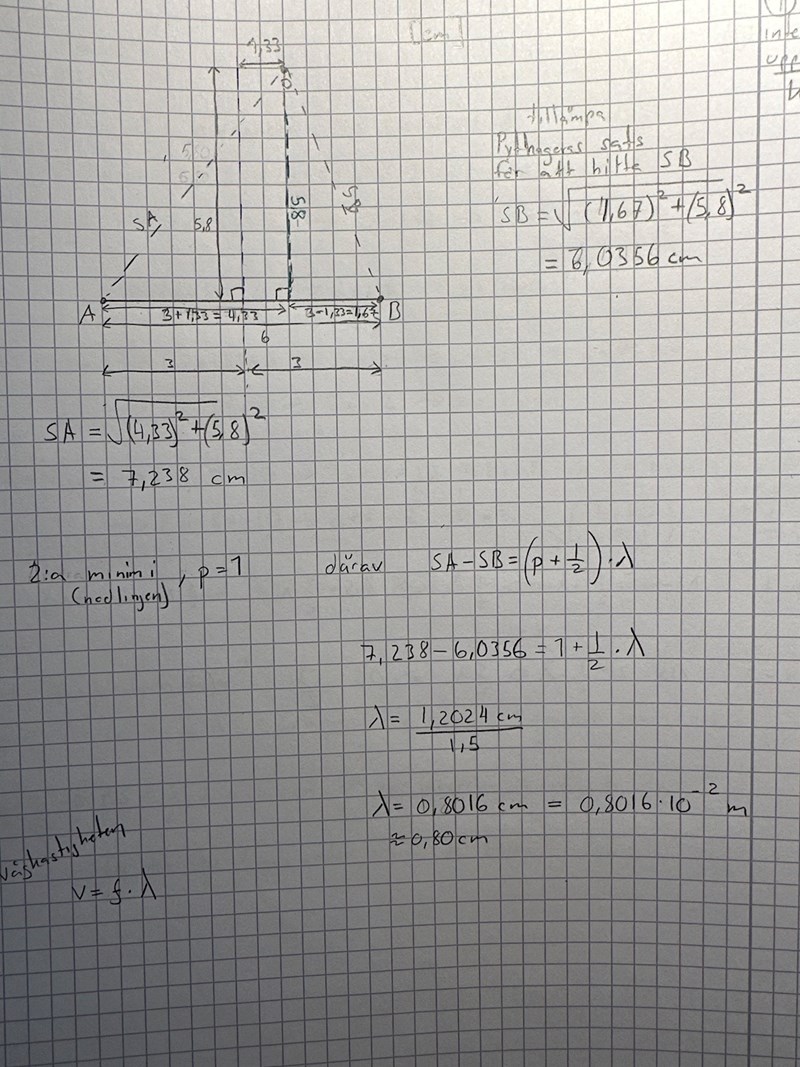 [cm]
1,33
SB
SA
5,8
5,8
A
3+1,33=4,33
3-1,33=1,67
B
6
3
3
tillämpa
Pythagoras sats
för att hitta SB
SB = √(1,67)² + (5,8)²
= 6,0356 cm
SA = √(4,33)² + (5,8)²
= 7,238 cm
2:a minimi, p=1
(nodlinjen)
därav SA-SB = (p + 1/2) · λ
7,238 - 6,0356 = 1 + 1/2 · λ
λ = 1,2024 cm / 1,5
λ = 0,8016 cm = 0,8016 · 10⁻² m
≈ 0,80 cm
våghastigheten
v = f · λ